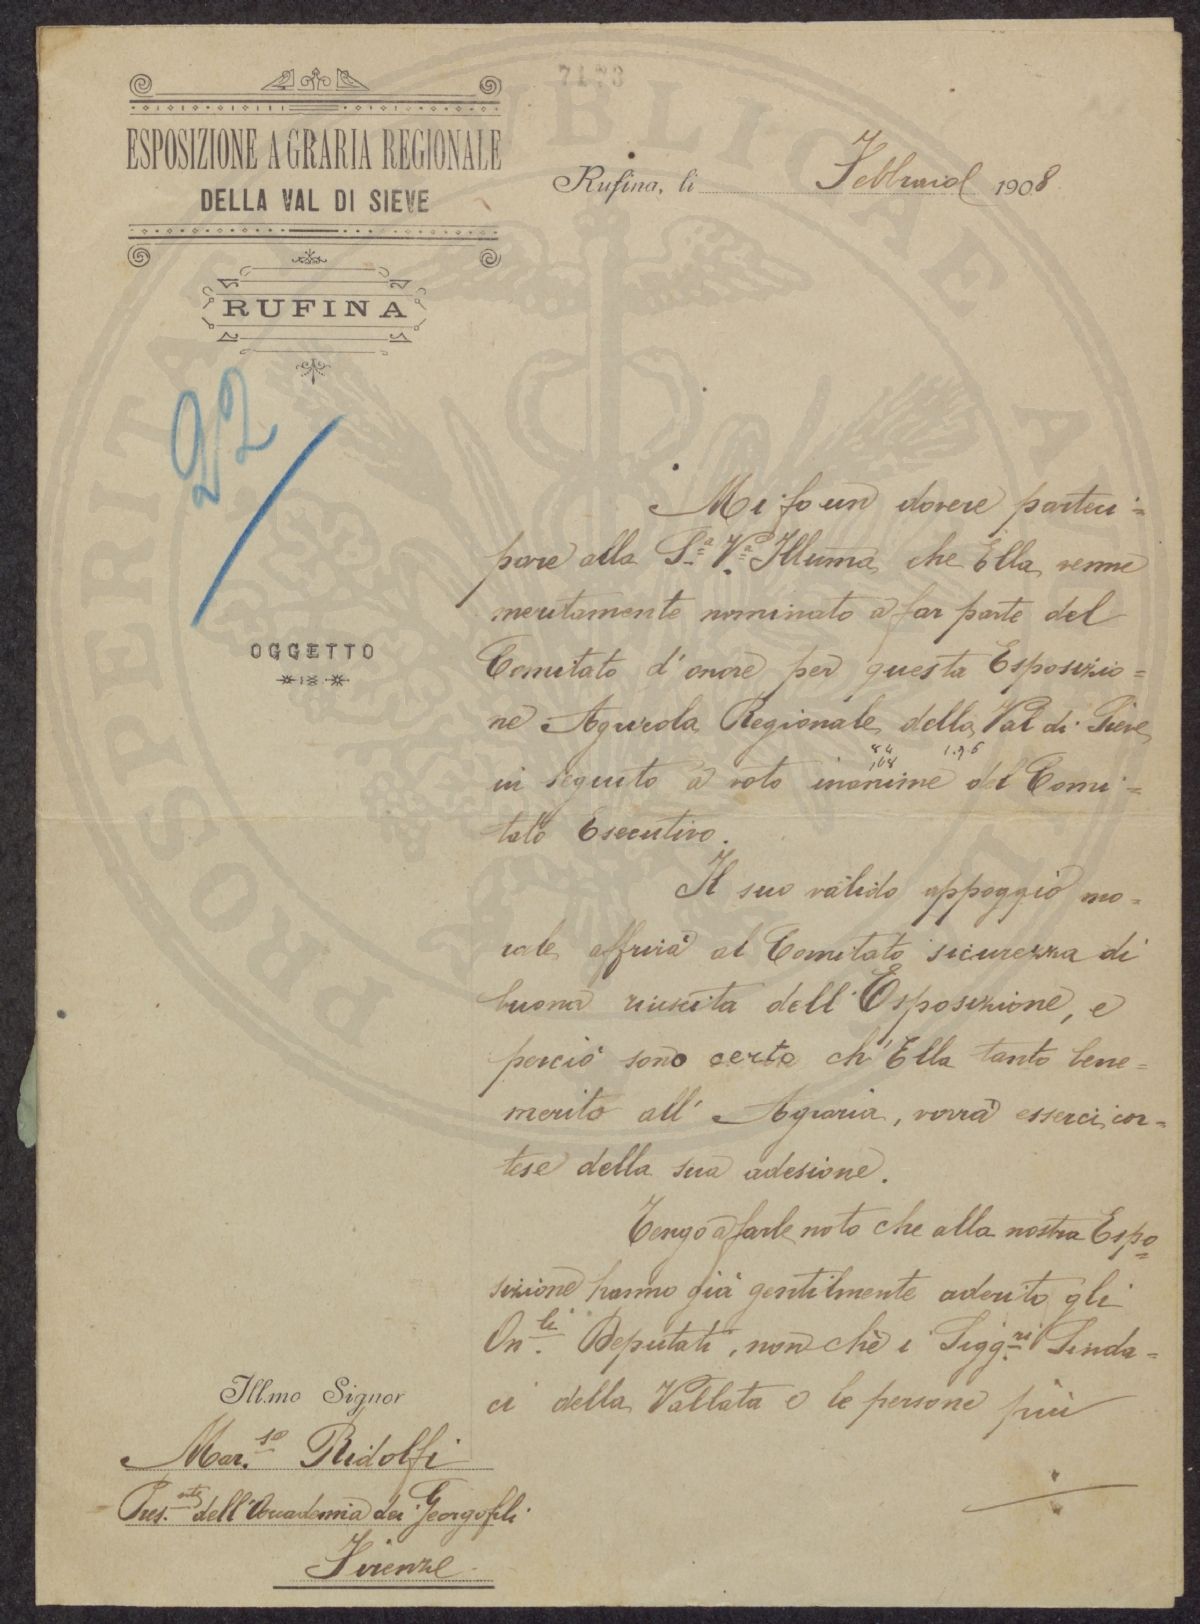 7173
ESPOSIZIONE AGRARIA REGIONALE
DELLA VAL DI SIEVE
RUFINA
Rufina, li Febbraio 1908
22
OGGETTO
Mi fo un dovere parteci=
pare alla S.a V.a Illuma che Ella venne
meritamente nominato a far parte del
Comitato d'onore per questa Esposizio=
ne Agricola Regionale della Val di Sieve
in seguito a voto inanime del Comi=
tato Esecutivo.
Il suo valido appoggio mo=
rale offrirà al Comitato sicurezza di
buona riuscita dell'Esposizione, e
perciò sono certo ch'Ella tanto bene=
merito all'Agraria, vorrà esserci cor=
tese della sua adesione.
Tengo a farle noto che alla nostra Espo=
sizione hanno già gentilmente aderito gli
On.li Deputati, non chè i Sigg.ri Sinda=
ci della Vallata e le persone più
Ill.mo Signor
Mar.se Ridolfi
Pres.nte dell'Accademia dei Georgofili
Firenze
PROSPERITATI PUBLICAE AUGENDAE